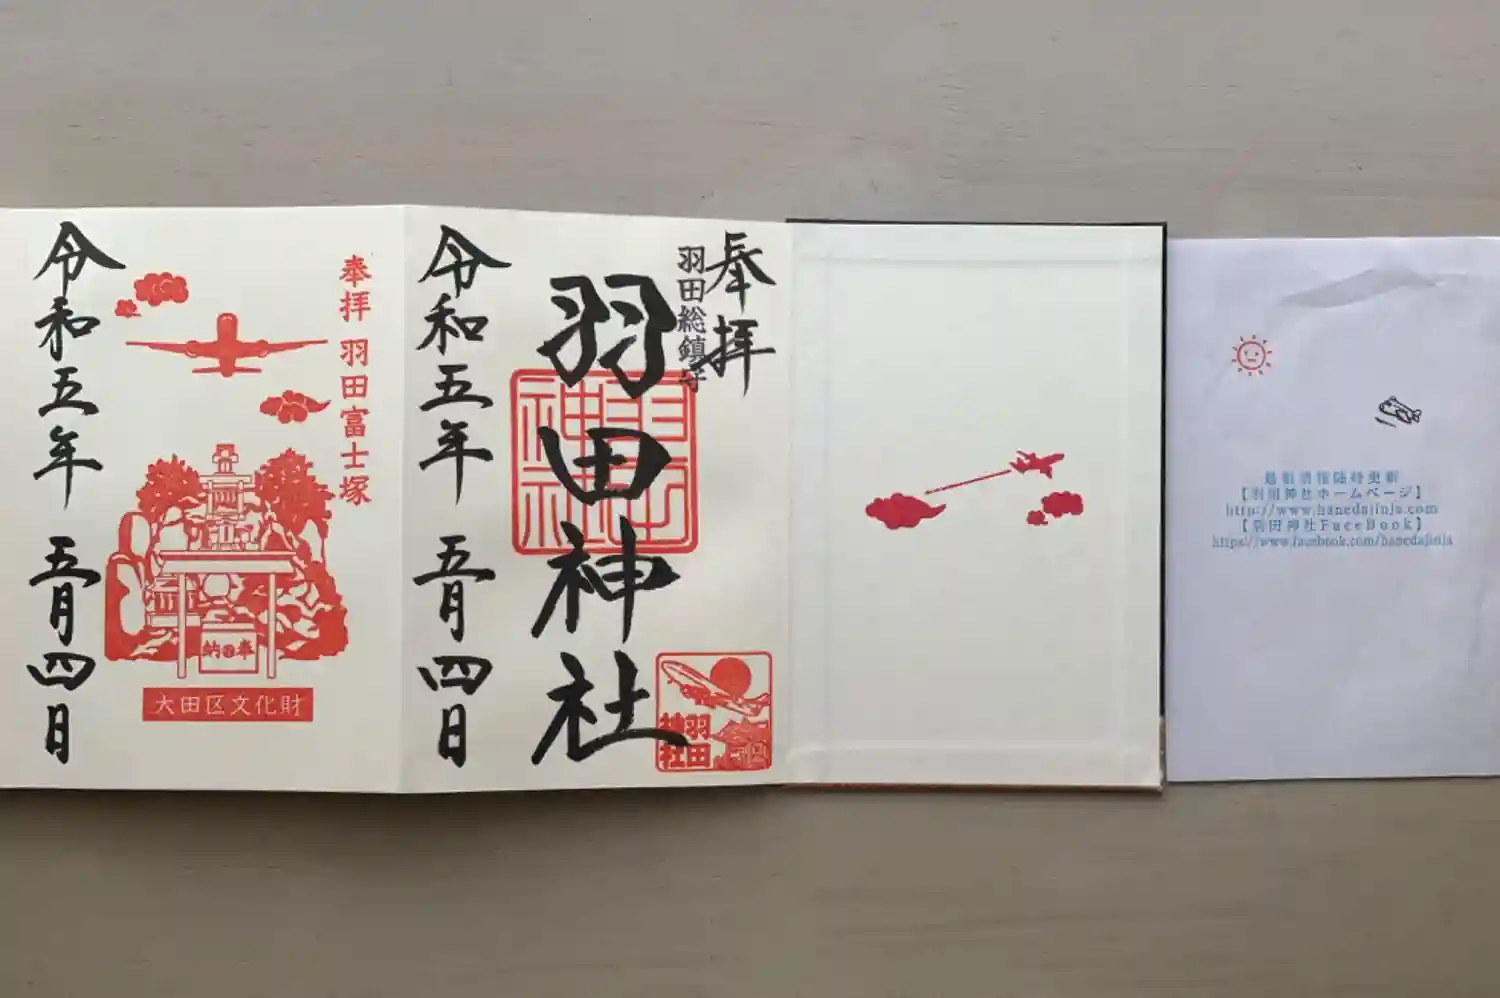 奉拝
羽田総鎮守
羽田神社
羽田神社
羽田神社
令和五年 五月四日
奉拝 羽田富士塚
奉納
大田区文化財
令和五年 五月四日
最新情報随時更新
【羽田神社ホームページ】
http://www.hanedajinja.com
【羽田神社FaceBook】
https://www.facebook.com/hanedajinja